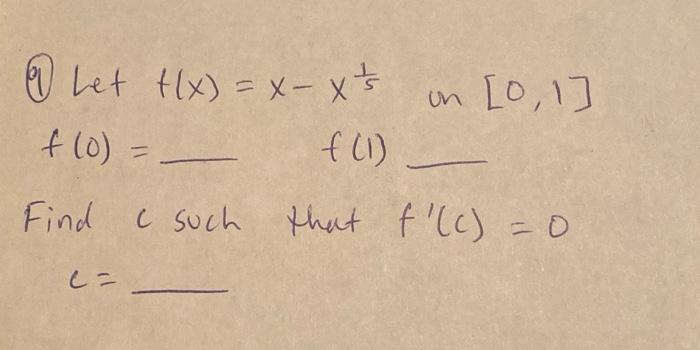 ⑨ Let f(x) = x - x^(1/5) on [0,1]
f(0) = ____ f(1) ____
Find c such that f'(c) = 0
c = ____